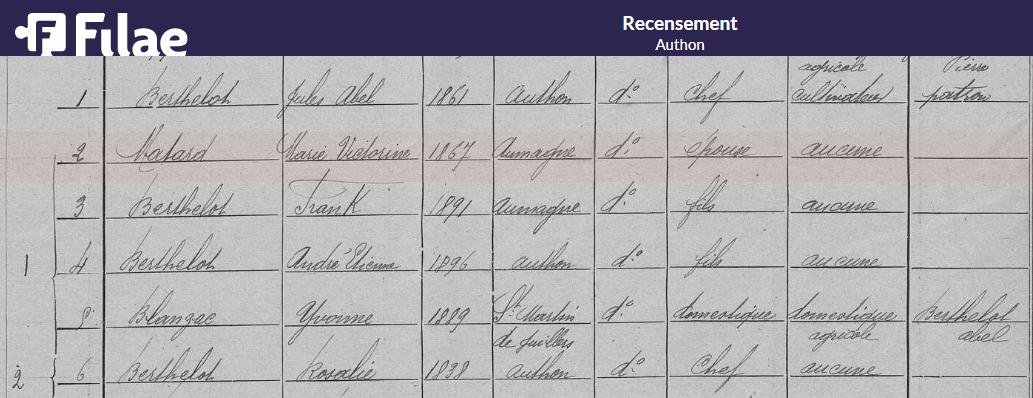 Filae
Recensement
Authon
agricole Pierre
1 Berthelot Jules Abel 1861 Authon do. Chef cultivateur patron
2 Matard Marie Victorine 1867 Aumagne do. épouse aucune
3 Berthelot Frank 1891 Aumagne do. fils aucune
1 4 Berthelot André Etienne 1896 authon do. fils aucune
Blanzac Yvonne 1889 St Martin do. domestique domestique Berthelot
de Juillers agricole abel
2 6 Berthelot Rosalie 1838 Authon do. Chef aucune